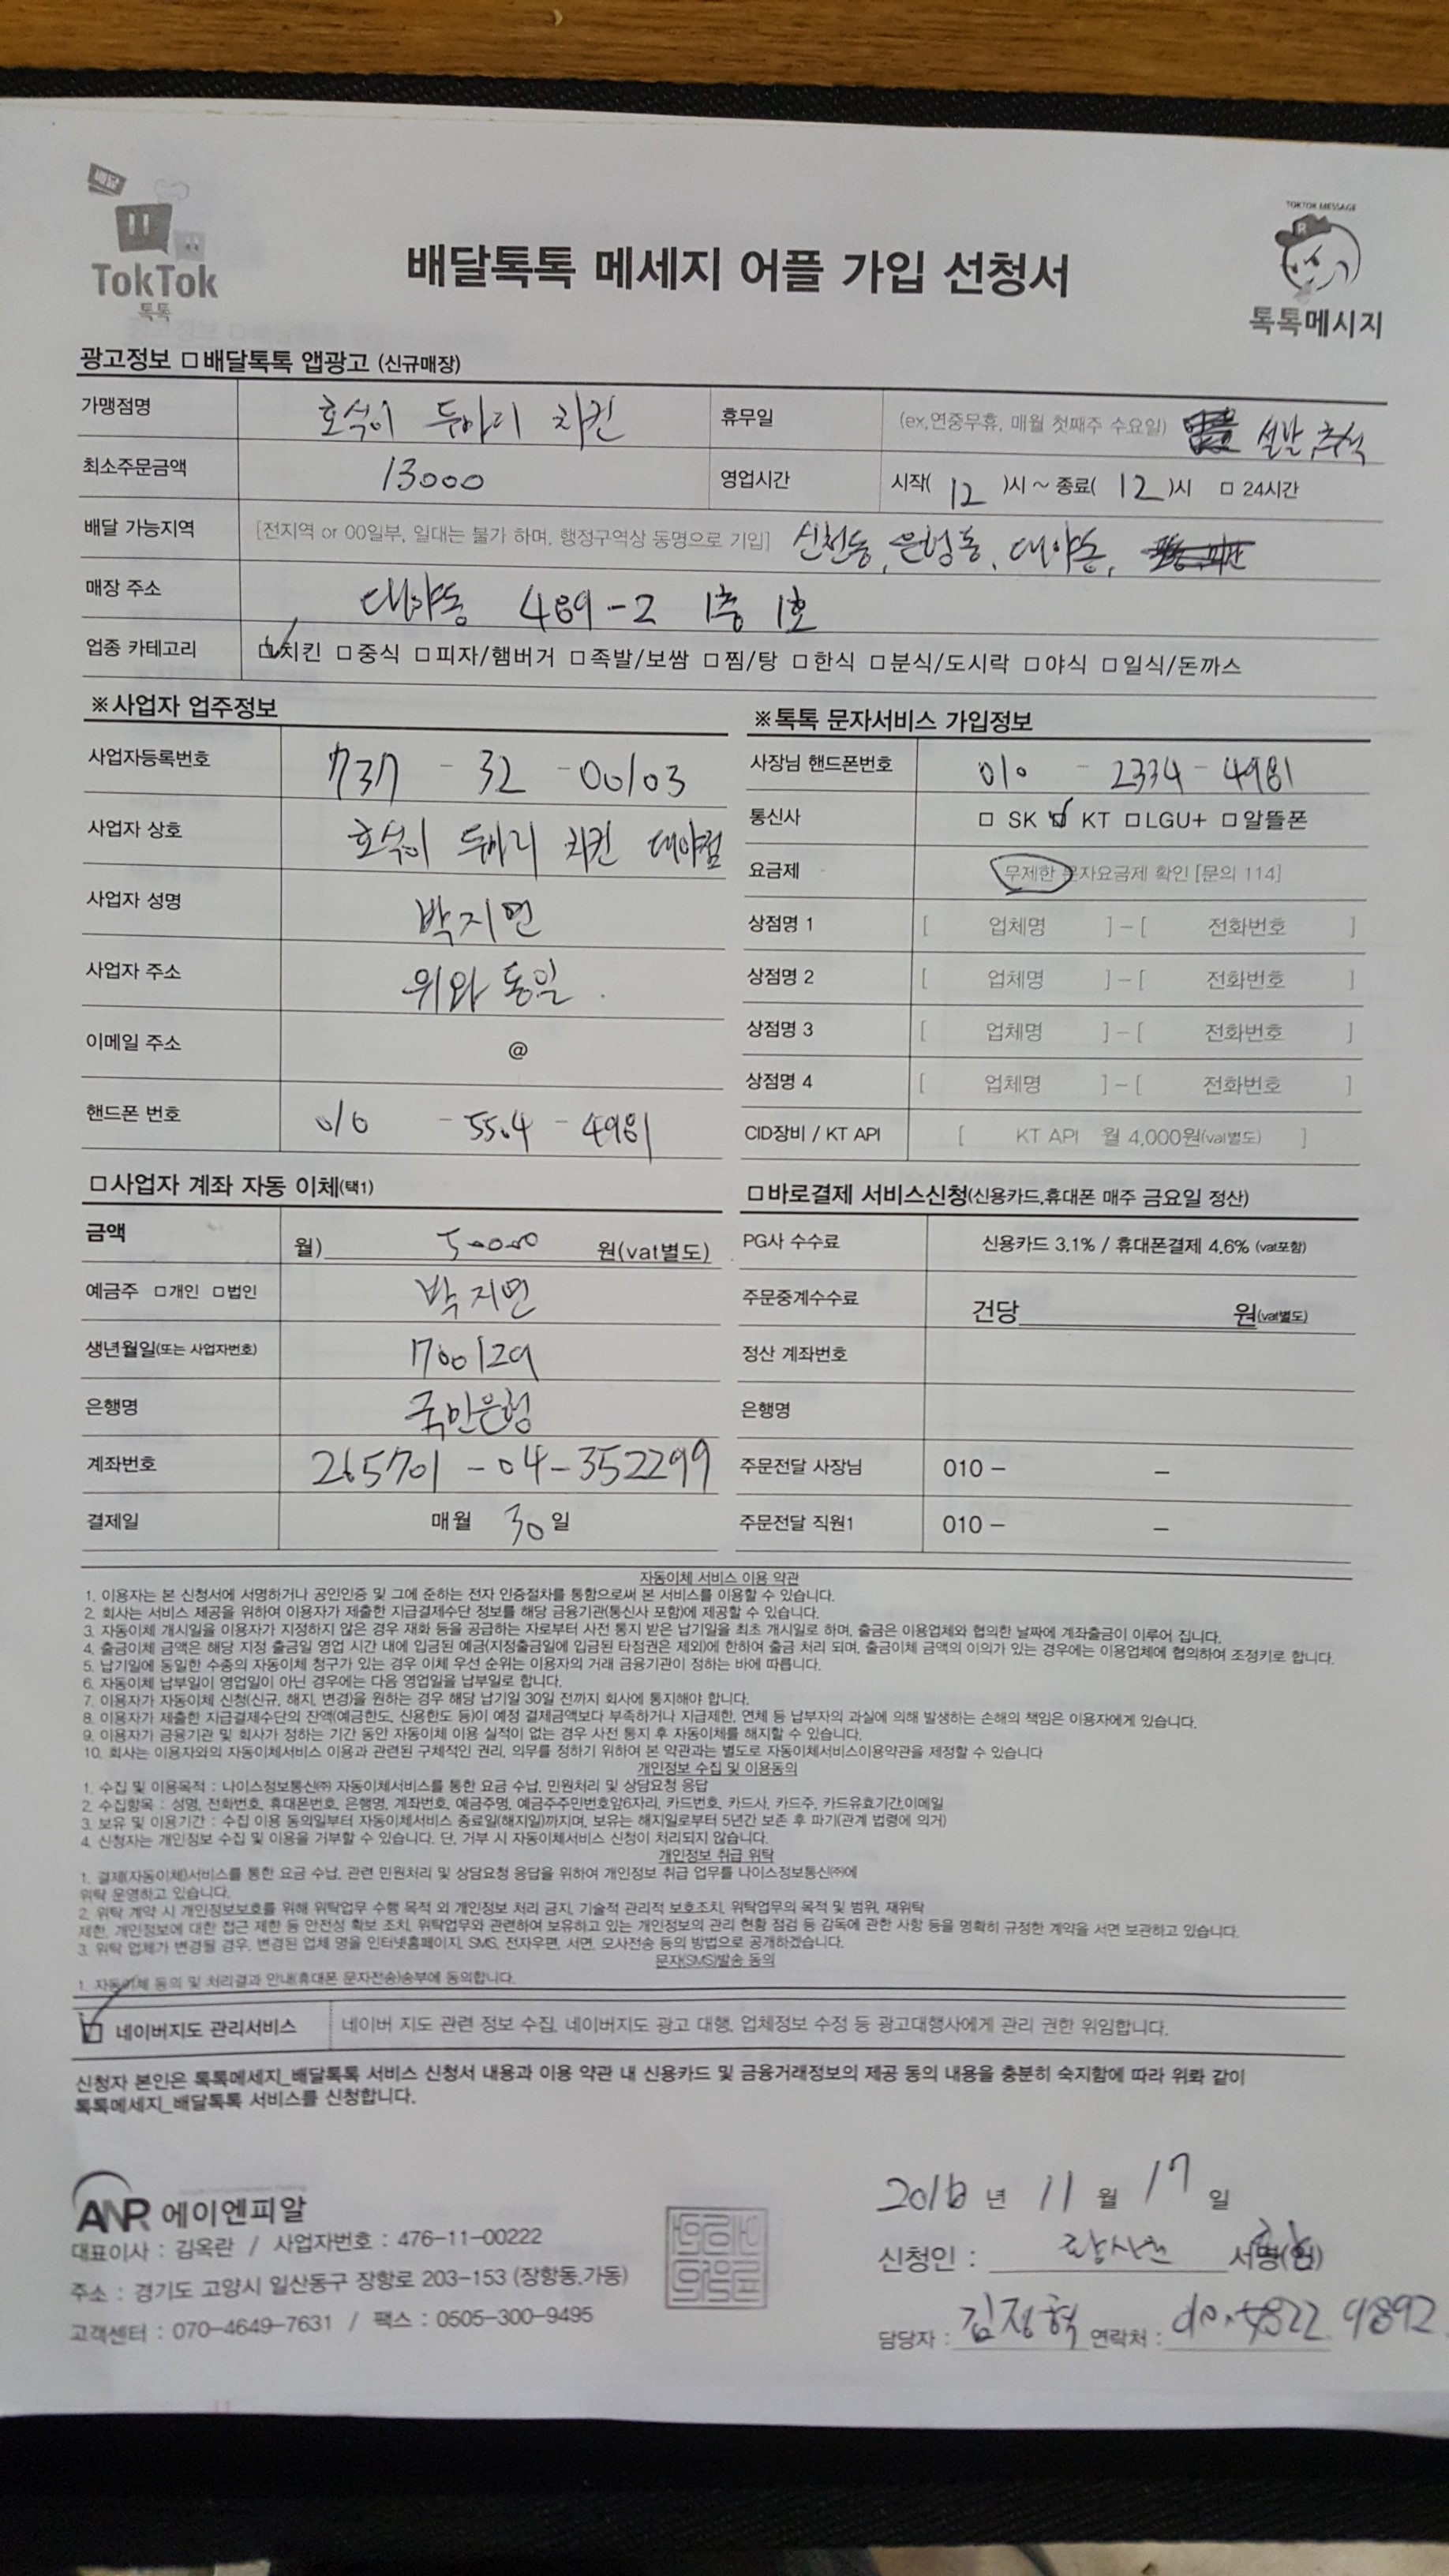 배달
TokTok
톡톡
배달톡톡 메세지 어플 가입 신청서
TOKTOK MESSAGE
R
톡톡메시지
광고정보 □ 배달톡톡 앱광고 (신규매장)
가맹점명 호석이 두마리 치킨 휴무일 (ex,연중무휴, 매월 첫째주 수요일) 설날, 추석
최소주문금액 13000 영업시간 시작( 12 )시 ~ 종료( 12 )시 □ 24시간
배달 가능지역 [전지역 or 00일부, 일대는 불가 하며, 행정구역상 동명으로 기입] 신천동, 은행동, 대야동,
매장 주소 대야동 489-2 1층 1호
업종 카테고리 ☑치킨 □중식 □피자/햄버거 □족발/보쌈 □찜/탕 □한식 □분식/도시락 □야식 □일식/돈까스
※사업자 업주정보
사업자등록번호 737 - 32 - 00103
사업자 상호 호석이 두마리 치킨 대야점
사업자 성명 박지연
사업자 주소 위와 동일.
이메일 주소 @
핸드폰 번호 010 - 5504 - 4981
※톡톡 문자서비스 가입정보
사장님 핸드폰번호 010 - 2334 - 4981
통신사 □ SK ☑ KT □LGU+ □알뜰폰
요금제 무제한 문자요금제 확인 [문의 114]
상점명 1 [ 업체명 ] - [ 전화번호 ]
상점명 2 [ 업체명 ] - [ 전화번호 ]
상점명 3 [ 업체명 ] - [ 전화번호 ]
상점명 4 [ 업체명 ] - [ 전화번호 ]
CID장비 / KT API [ KT API 월 4,000원(vat별도) ]
□사업자 계좌 자동 이체(택1)
금액 월) 50000 원(vat별도)
예금주 □개인 □법인 박지연
생년월일(또는 사업자번호) 700129
은행명 국민은행
계좌번호 265701-04-352299
결제일 매월 30일
□바로결제 서비스신청(신용카드,휴대폰 매주 금요일 정산)
PG사 수수료 신용카드 3.1% / 휴대폰결제 4.6% (vat포함)
주문중계수수료 건당 원(vat별도)
정산 계좌번호
은행명
주문전달 사장님 010 - -
주문전달 직원1 010 - -
자동이체 서비스 이용 약관
1. 이용자는 본 신청서에 서명하거나 공인인증 및 그에 준하는 전자 인증절차를 통함으로써 본 서비스를 이용할 수 있습니다.
2. 회사는 서비스 제공을 위하여 이용자가 제출한 지급결제수단 정보를 해당 금융기관(통신사 포함)에 제공할 수 있습니다.
3. 자동이체 개시일을 이용자가 지정하지 않은 경우 재화 등을 공급하는 자로부터 사전 통지 받은 납기일을 최초 개시일로 하며, 출금은 이용업체와 협의한 날짜에 계좌출금이 이루어 집니다.
4. 출금이체 금액은 해당 지정 출금일 영업 시간 내에 입금된 예금(지정출금일에 입금된 타점권은 제외)에 한하여 출금 처리 되며, 출금이체 금액의 이의가 있는 경우에는 이용업체에 협의하여 조정키로 합니다.
5. 납기일에 동일한 수종의 자동이체 청구가 있는 경우 이체 우선 순위는 이용자의 거래 금융기관이 정하는 바에 따릅니다.
6. 자동이체 납부일이 영업일이 아닌 경우에는 다음 영업일을 납부일로 합니다.
7. 이용자가 자동이체 신청(신규, 해지, 변경)을 원하는 경우 해당 납기일 30일 전까지 회사에 통지해야 합니다.
8. 이용자가 제출한 지급결제수단의 잔액(예금한도, 신용한도 등)이 예정 결제금액보다 부족하거나 지급제한, 연체 등 납부자의 과실에 의해 발생하는 손해의 책임은 이용자에게 있습니다.
9. 이용자가 금융기관 및 회사가 정하는 기간 동안 자동이체 이용 실적이 없는 경우 사전 통지 후 자동이체를 해지할 수 있습니다.
10. 회사는 이용자와의 자동이체서비스 이용과 관련된 구체적인 권리, 의무를 정하기 위하여 본 약관과는 별도로 자동이체서비스이용약관을 제정할 수 있습니다
개인정보 수집 및 이용동의
1. 수집 및 이용목적 : 나이스정보통신㈜ 자동이체서비스를 통한 요금 수납, 민원처리 및 상담요청 응답
2. 수집항목 : 성명, 전화번호, 휴대폰번호, 은행명, 계좌번호, 예금주명, 예금주주민번호앞6자리, 카드번호, 카드사, 카드주, 카드유효기간,이메일
3. 보유 및 이용기간 : 수집 이용 동의일부터 자동이체서비스 종료일(해지일)까지며, 보유는 해지일로부터 5년간 보존 후 파기(관계 법령에 의거)
4. 신청자는 개인정보 수집 및 이용을 거부할 수 있습니다. 단, 거부 시 자동이체서비스 신청이 처리되지 않습니다.
개인정보 취급 위탁
1. 결제(자동이체)서비스를 통한 요금 수납, 관련 민원처리 및 상담요청 응답을 위하여 개인정보 취급 업무를 나이스정보통신㈜에
위탁 운영하고 있습니다.
2. 위탁 계약 시 개인정보보호를 위해 위탁업무 수행 목적 외 개인정보 처리 금지, 기술적 관리적 보호조치, 위탁업무의 목적 및 범위, 재위탁
제한, 개인정보에 대한 접근 제한 등 안전성 확보 조치, 위탁업무와 관련하여 보유하고 있는 개인정보의 관리 현황 점검 등 감독에 관한 사항 등을 명확히 규정한 계약을 서면 보관하고 있습니다.
3. 위탁 업체가 변경될 경우, 변경된 업체 명을 인터넷홈페이지, SMS, 전자우편, 서면, 모사전송 등의 방법으로 공개하겠습니다.
문자(SMS)발송 동의
1. 자동이체 동의 및 처리결과 안내(휴대폰 문자전송)송부에 동의합니다.
☑ 네이버지도 관리서비스 네이버 지도 관련 정보 수집, 네이버지도 광고 대행, 업체정보 수정 등 광고대행사에게 관리 권한 위임합니다.
신청자 본인은 톡톡메세지_배달톡톡 서비스 신청서 내용과 이용 약관 내 신용카드 및 금융거래정보의 제공 동의 내용을 충분히 숙지함에 따라 위와 같이
톡톡메세지_배달톡톡 서비스를 신청합니다.
ANR 에이엔피알
대표이사 : 김옥란 / 사업자번호 : 476-11-00222
주소 : 경기도 고양시 일산동구 장항로 203-153 (장항동,가동)
고객센터 : 070-4649-7631 / 팩스 : 0505-300-9495
2016 년 11 월 17 일
신청인 : 서명(인)
담당자 : 김정혁 연락처 : 010.4822.9892